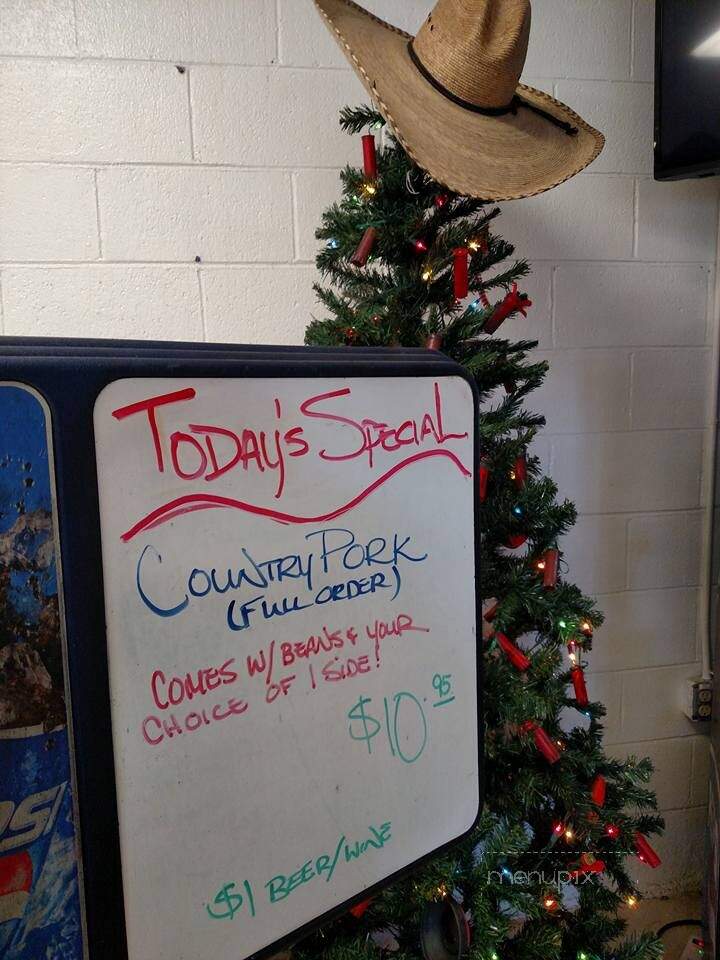 TODAY'S SPECIAL
COUNTRY PORK
(FULL ORDER)
COMES W/ BEANS & YOUR
CHOICE OF 1 SIDE!
$10.95
$1 BEER/WINE
PSI
menupix